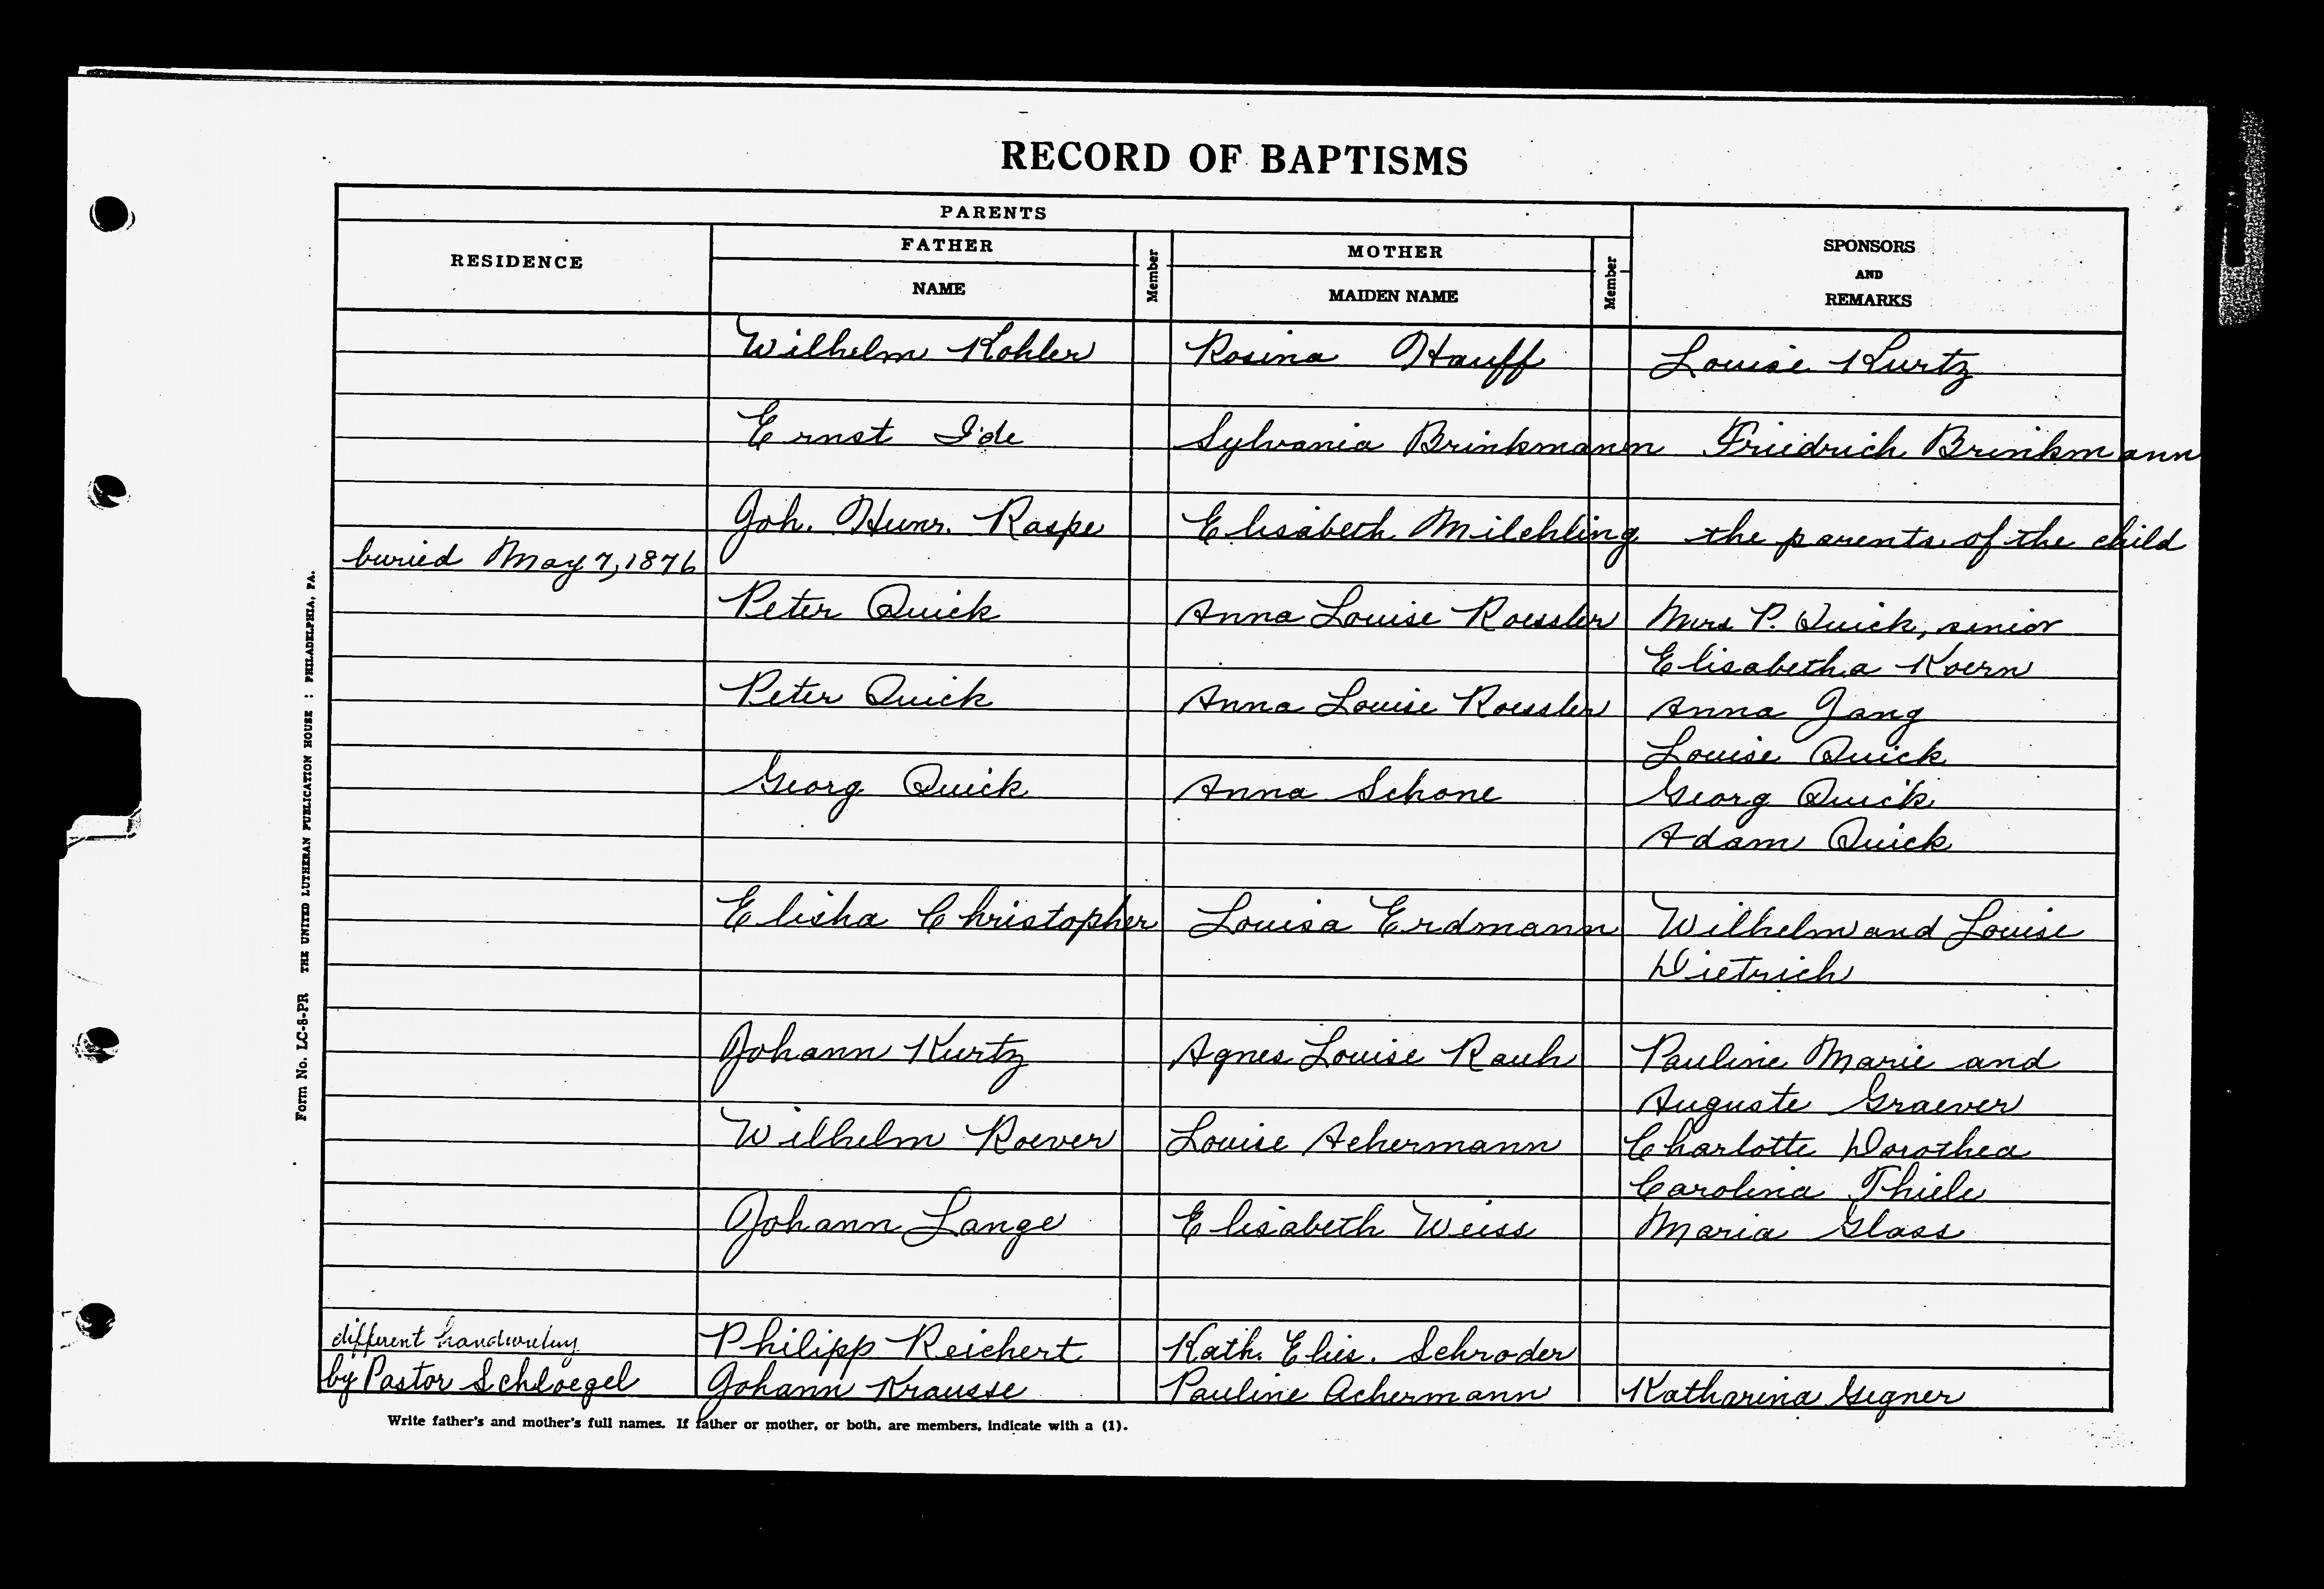 RECORD OF BAPTISMS
PARENTS
RESIDENCE FATHER NAME Member MOTHER MAIDEN NAME Member SPONSORS AND REMARKS
Wilhelm Kohler Rosina Hauff Louise Kurtz
Ernst Ide Sylvania Brinkmann Friedrich Brinkmann
Joh. Henr. Raspe Elisabeth Milchling the parents of the child
buried May 7, 1876
Peter Quick Anna Louise Roessler Mrs. P. Quick, senior
Elisabetha Koern
Peter Quick Anna Louise Roessler Anna Gang
Louise Quick
Georg Quick Anna Schone Georg Quick
Adam Quick
Elisha Christopher Louisa Erdmann Wilhelm and Louise
Dietrich
Johann Kurtz Agnes Louise Rauh Pauline Marie and
Auguste Graever
Wilhelm Roever Louise Achermann Charlotte Dorothea
Carolina Thiele
Johann Lange Elisabeth Weiss Maria Glass
different handwriting Philipp Reichert Kath. Elis. Schroder
by Pastor Schloegel Johann Krausse Pauline Achermann Katharina Gegner
Write father's and mother's full names. If father or mother, or both, are members, indicate with a (1).
Form No. LC-8-PR THE UNITED LUTHERAN PUBLICATION HOUSE : PHILADELPHIA, PA.